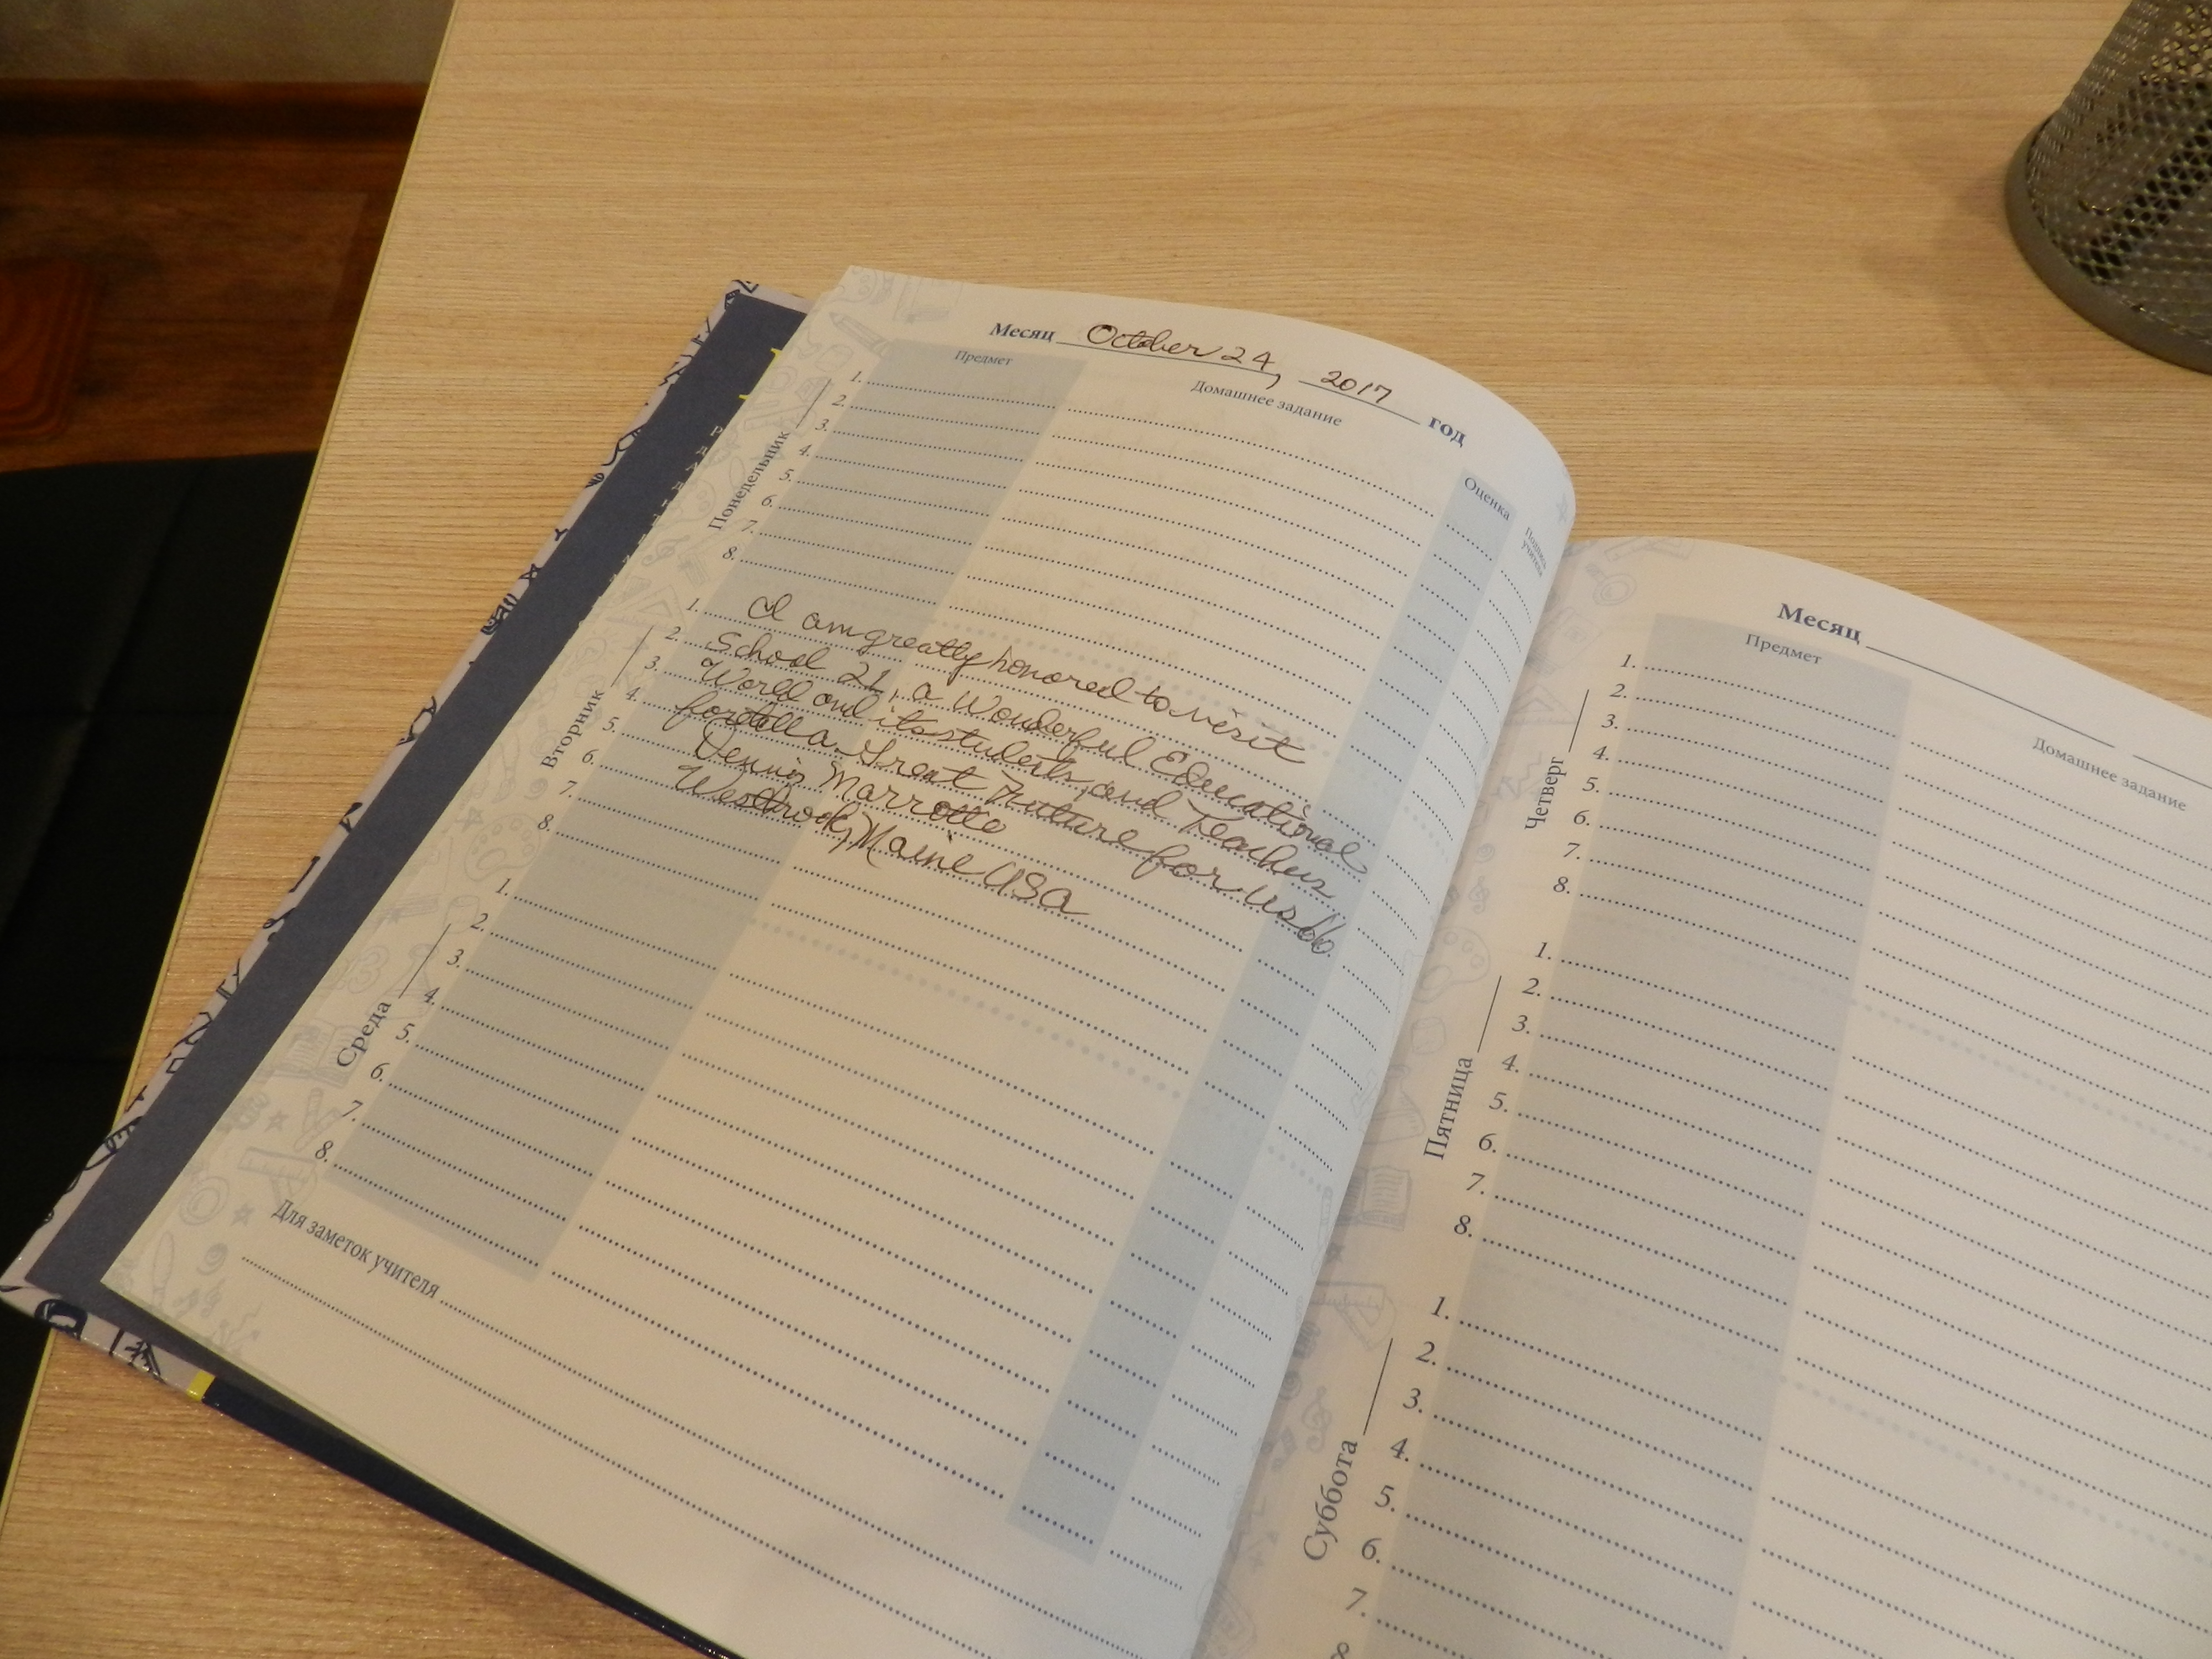 Месяц October 24, 2017 год
Предмет Домашнее задание Оценка Подпись учителя
Понедельник
1.
2.
3.
4.
5.
6.
7.
8.
Вторник
1. I am greatly honored to visit
2. School 21, a Wonderful Educational
3. World and its students, and Teachers
4. foretell a Great Future for us all
5. Dennis Marrotte
6. Westbrook, Maine USA
7.
8.
Среда
1.
2.
3.
4.
5.
6.
7.
8.
Для заметок учителя
Месяц
Предмет Домашнее задание
Четверг
1.
2.
3.
4.
5.
6.
7.
8.
Пятница
1.
2.
3.
4.
5.
6.
7.
8.
Суббота
1.
2.
3.
4.
5.
6.
7.
8